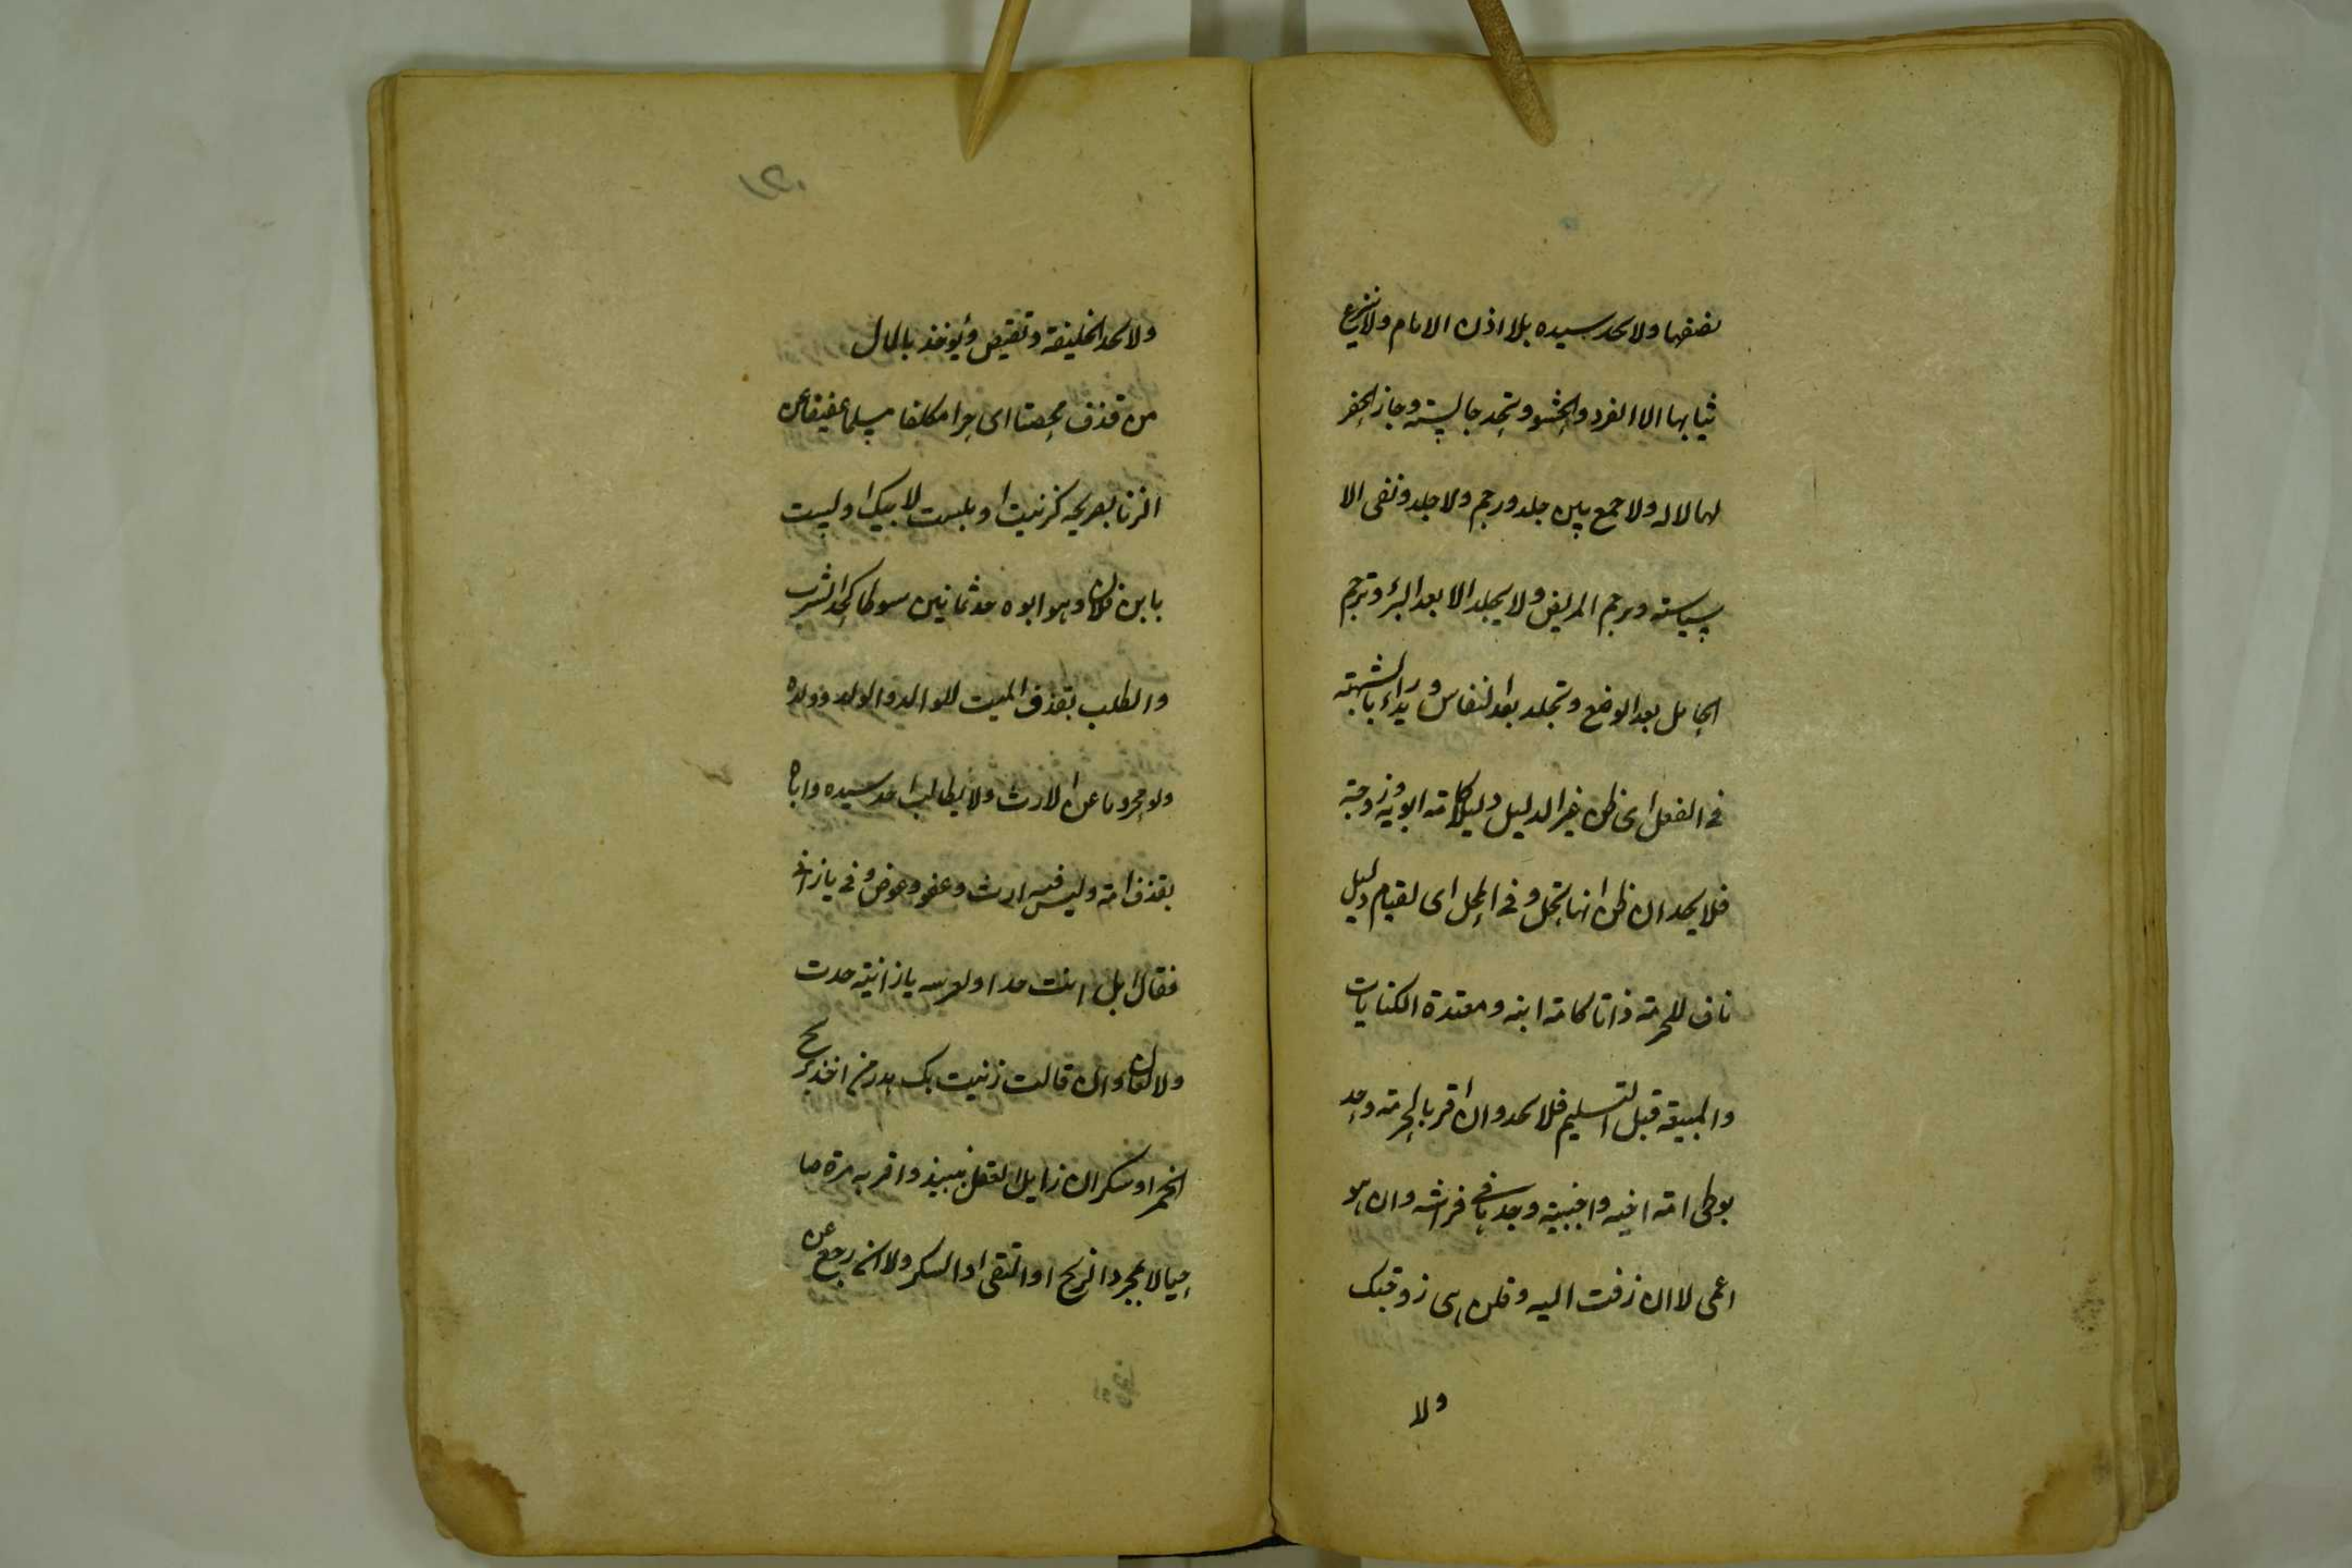 نصفها ولا يحد سيده بلا اذن الامام ولا ينزع
ثيابها الا الفرد والحشو وتحد جالسة وجاز الحفر
لها لا له ولا جمع بين جلد ورجم ولا جلد ونفى الا
سياسته ويرجم المريض ولا يجلد الا بعد البرء وترجم
الحامل بعد الوضع وتجلد بعد النفاس ويدراء بالشبهة
فى الفعل اى ظن غير الدليل دليلا كامة ابويه وزوجة
فلا يحد ان ظن انها تحل وفى المحل اى لقيام دليل
ناف للحرمة ذاتا كامة ابنه ومعتدة الكنايات
والمبيعة قبل التسليم فلا يحد وان اقر بالحرمة وحد
بوطى امة اخيه واجنبية وجدها فى فراشه وان هو
اعمى لا ان زفت اليه وقلن هى زوجتك
ولا
ولا يحد الخليفة وتقيص ويؤخذ بالمال
من قذف محصنا اى حرا مكلفا مسلما عفيفا عن
الزنا بصريحه كزنيت او بلست لابيك او ليست
بابن فلان وهو ابوه حد ثمانين سوطا كحد الشرب
والطلب بقذف الميت للوالد والولد وولده
ولو محروما عن الارث ولا يطالب احد سيده واباه
بقذف امة وليس فيه ارث وعفو وعوض وفى يا زانى
فقال بل انت حدا ولعرسه يا زانية حدت
ولا لعان وان قالت زنيت بك هدر من اخذ بريح
الخمر او سكران زايل العقل بنبيذ واقر به مرة صا
حيا لا بمجرد الريح او التقى او السكر ولا ان رجع عن